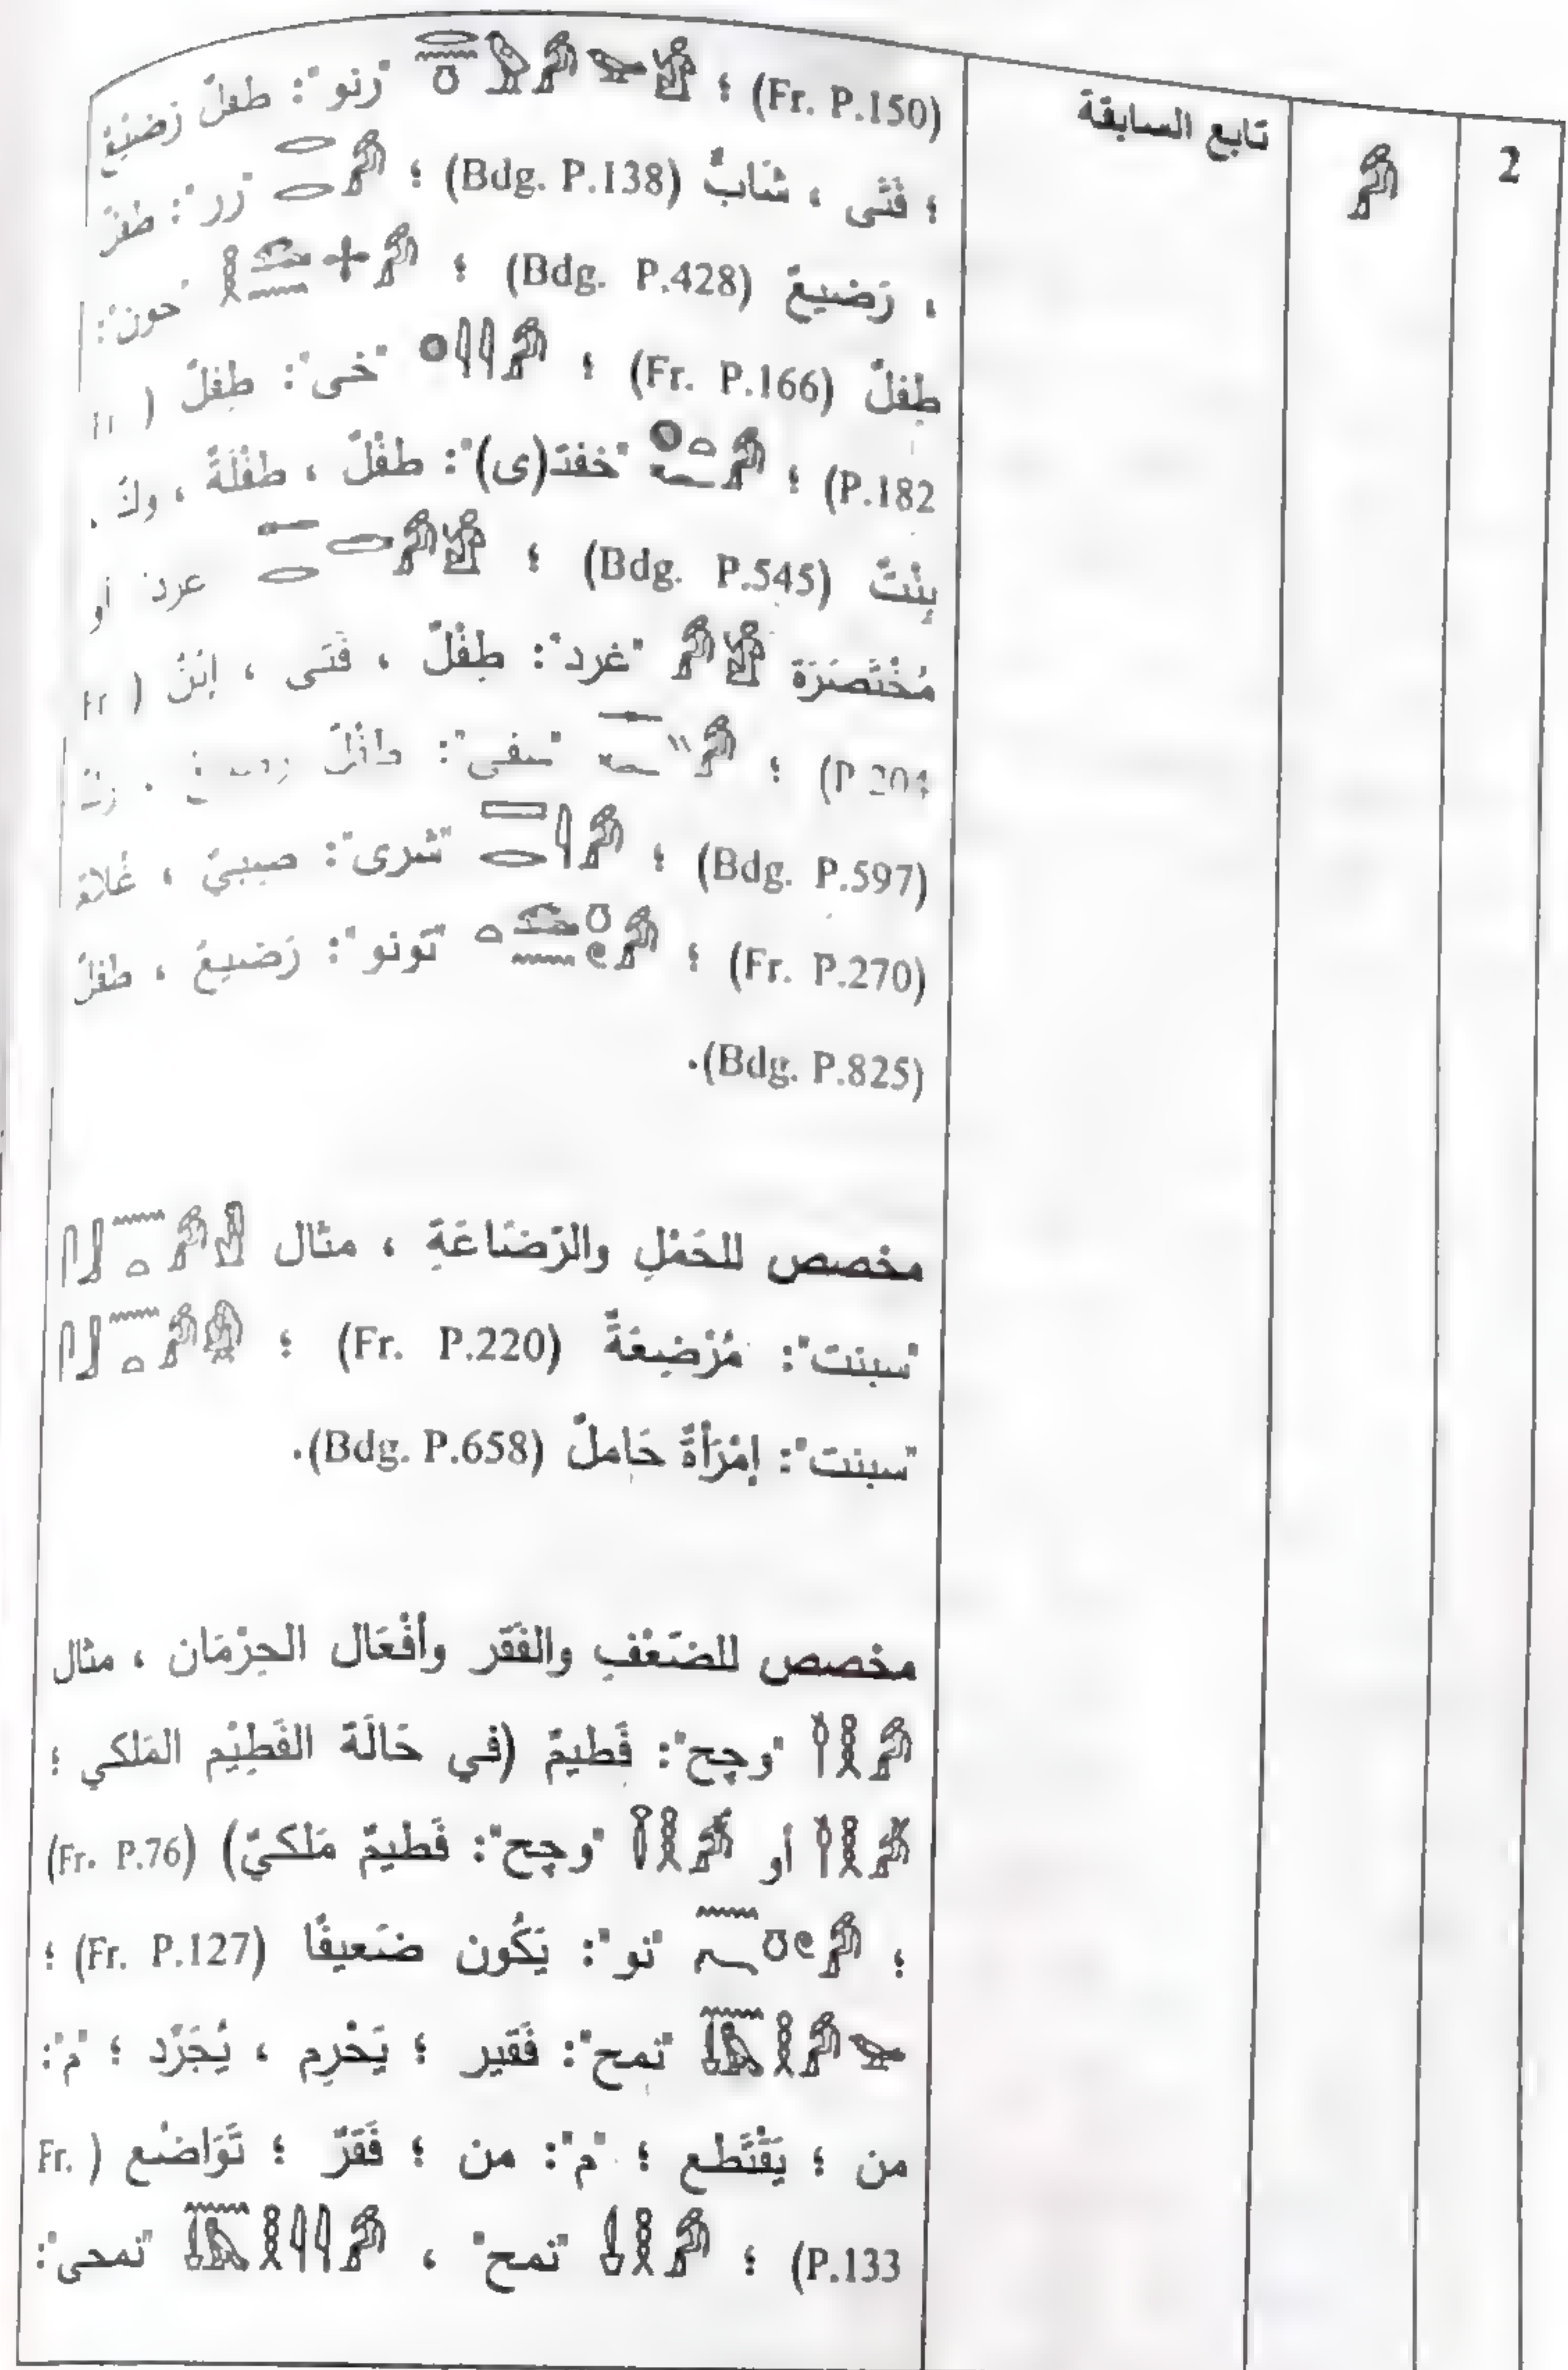 2
تابع السابقة
(Fr. P.150) ؛ "رنو": طفلٌ رَضيعٌ
؛ فَتًى ، شابٌ (Bdg. P.138) ؛ "رر": طفلٌ
، رَضيعٌ (Bdg. P.428) ؛ "حون":
طِفلٌ (Fr. P.166) ؛ "خى": طِفلٌ (Fr
P.182) ؛ "خفت(ى)": طفْلٌ ، طفْلَةٌ ،
بِنْتٌ (Bdg. P.545) ؛ عرد أو
مُخْتَصَرَة "غرد": طِفْلٌ ، فَتَى ، ابْنٌ (Fr
P.204) ؛ "سفى": طفْلٌ
(Bdg. P.597) ؛ "شرى": صبيٌ ، غُلامٌ
(Fr. P.270) ؛ "تونو": رَضيعٌ ، طفلٌ
(Bdg. P.825).
مخصص للحَمْلِ والرَّضَاعَةِ ، مثال
"سبنت": مُرْضِعَةٌ (Fr. P.220) ؛
"سبنت": إمْرَأةٌ حَاملٌ (Bdg. P.658).
مخصص للضَعْفِ والفَقَر وأفْعَال الحِرْمَان ، مثال
"وچح": فَطيمٌ (في حَالَة الفَطِيْم المَلكي ؛
أو "وچح": فَطيمٌ مَلكيّ) (Fr. P.76)
؛ "نو": يَكُون ضَعيفًا (Fr. P.127) ؛
"نمح": فَقير ؛ يَحْرِم ، يُجَرِّد ؛ "م":
من ؛ يَقْتَطع ؛ "م": من ؛ فَقَرٌ ؛ تَوَاضُع (Fr.
P.133) ؛ "نمح" ، "نمحى":